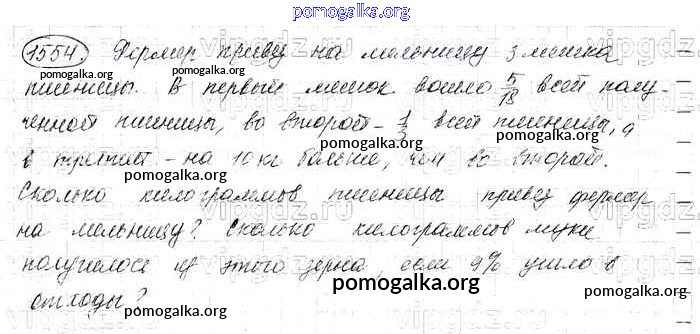 pomogalka.org
1554. Фермер привез на мельницу 3 мешка
пшеницы. В первый мешок вошло 5/18 всей полу-
ченной пшеницы, во второй - 1/3 всей пшеницы, а
в третий - на 10 кг больше, чем во второй.
Сколько килограммов пшеницы привез фермер
на мельницу? Сколько килограммов муки
получилось из этого зерна, если 9% ушло в
отходы?
pomogalka.org
pomogalka.org
pomogalka.org
pomogalka.org
pomogalka.org
pomogalka.org
pomogalka.org
pomogalka.org